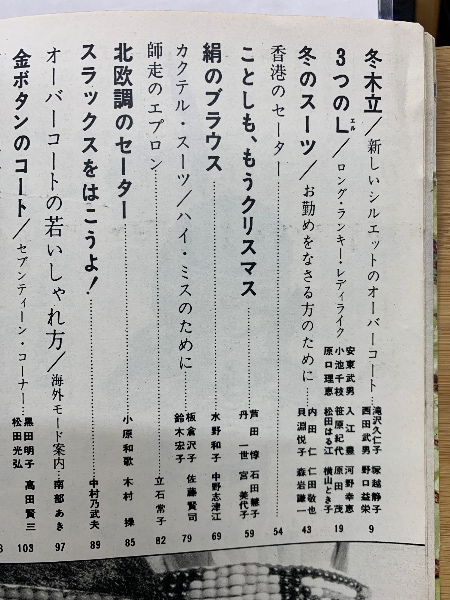 冬木立／新しいシルエットのオーバーコート…滝沢久仁子 塚越静子 西田武男 野口益栄 9
3つのL／ロング・ランキー・レディライク 安東武男 入江豊 河野幸恵 小池千枝 笹原紀代 原田茂 原口理恵 松田はる江 横山とき子 19
エル
冬のスーツ／お勤めをなさる方のために…内田仁 仁田敬也 貝淵悦子 森岩謙一 43
香港のセーター…54
ことしも、もうクリスマス…芦田淳 石田慧子 丹一世 宮美代子 59
絹のブラウス…水野和子 中野志津江 69
カクテル・スーツ／ハイ・ミスのために…板倉沢子 佐藤賢司 鈴木宏子 79
師走のエプロン…立石常子 82
北欧調のセーター…小原和歌 木村操 85
スラックスをはこうよ！…中村乃武夫 89
オーバーコートの若いしゃれ方／海外モード案内…南部あき 97
金ボタンのコート／セブンティーン・コーナー…黒田明子 高田賢三 松田光弘 103